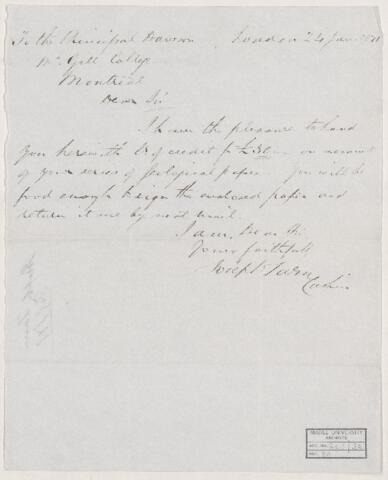 To the Principal Dawson London 24 Jan. 1871
McGill College
Montreal
Dear Sir
I have the pleasure to hand
you herewith of credit for £30 on account
of your series of Geological papers. You will be
good enough to sign the enclosed paper and
return it me by next mail.
I am, Dear Sir
Yours faithfully
Joseph
McGILL UNIVERSITY
ARCHIVES
ACC. NO.
REF.